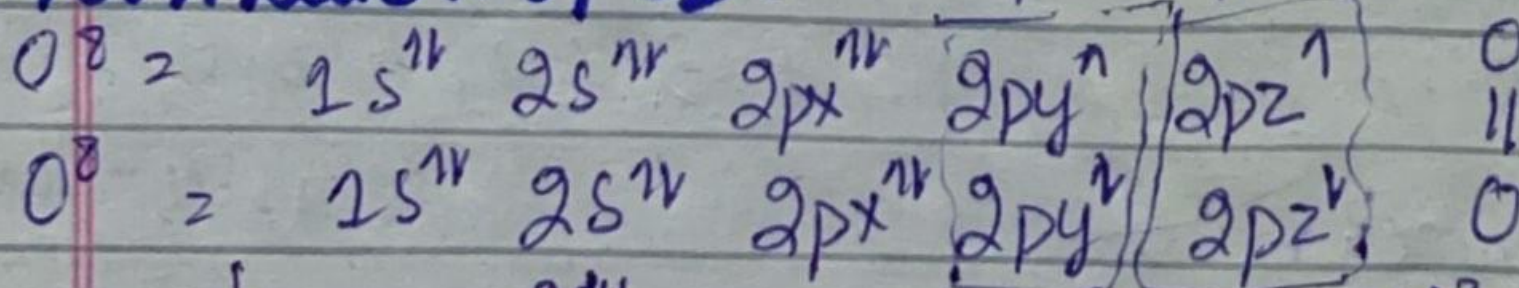 O⁸ = 1s↑↓ 2s↑↓ 2px↑↓ 2py↑ 2pz↑ O
||
O⁸ = 1s↑↓ 2s↑↓ 2px↑↓ 2py↓ 2pz↓ O